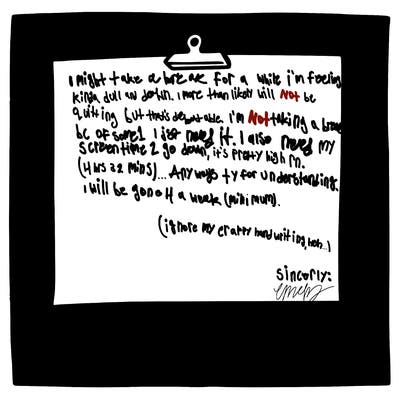 I might take a break for a while i'm feeling
kinda dull and down. I more than likely will NOT be
quitting but that's debateable. i'm NOT taking a break
bc of some1 I just need it. I also need my
screentime 2 go down, it's pretty high rn.
(4 hrs 32 mins)... Anyways ty for understanding.
i will be gone 4 a week (minimum).
(ignore my crappy handwriting, heh...)
sincerly: